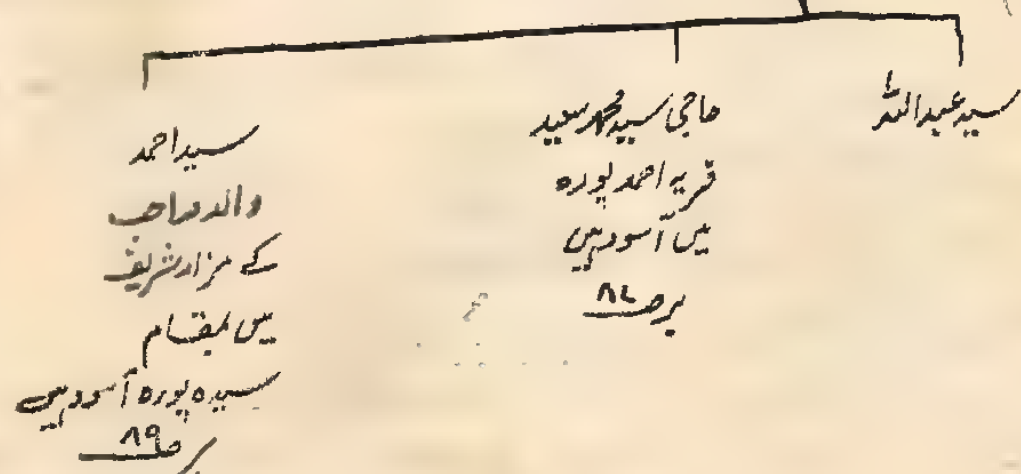 سید عبداللہ
حاجی سید محمد سعید
قریہ احمد پورہ
میں آسودہیں
برصـ ۸۴
سید احمد
والد صاحب
کے مزار شریف
میں بمقام
سیدہ پورہ آسودہیں
صـ ۸۹